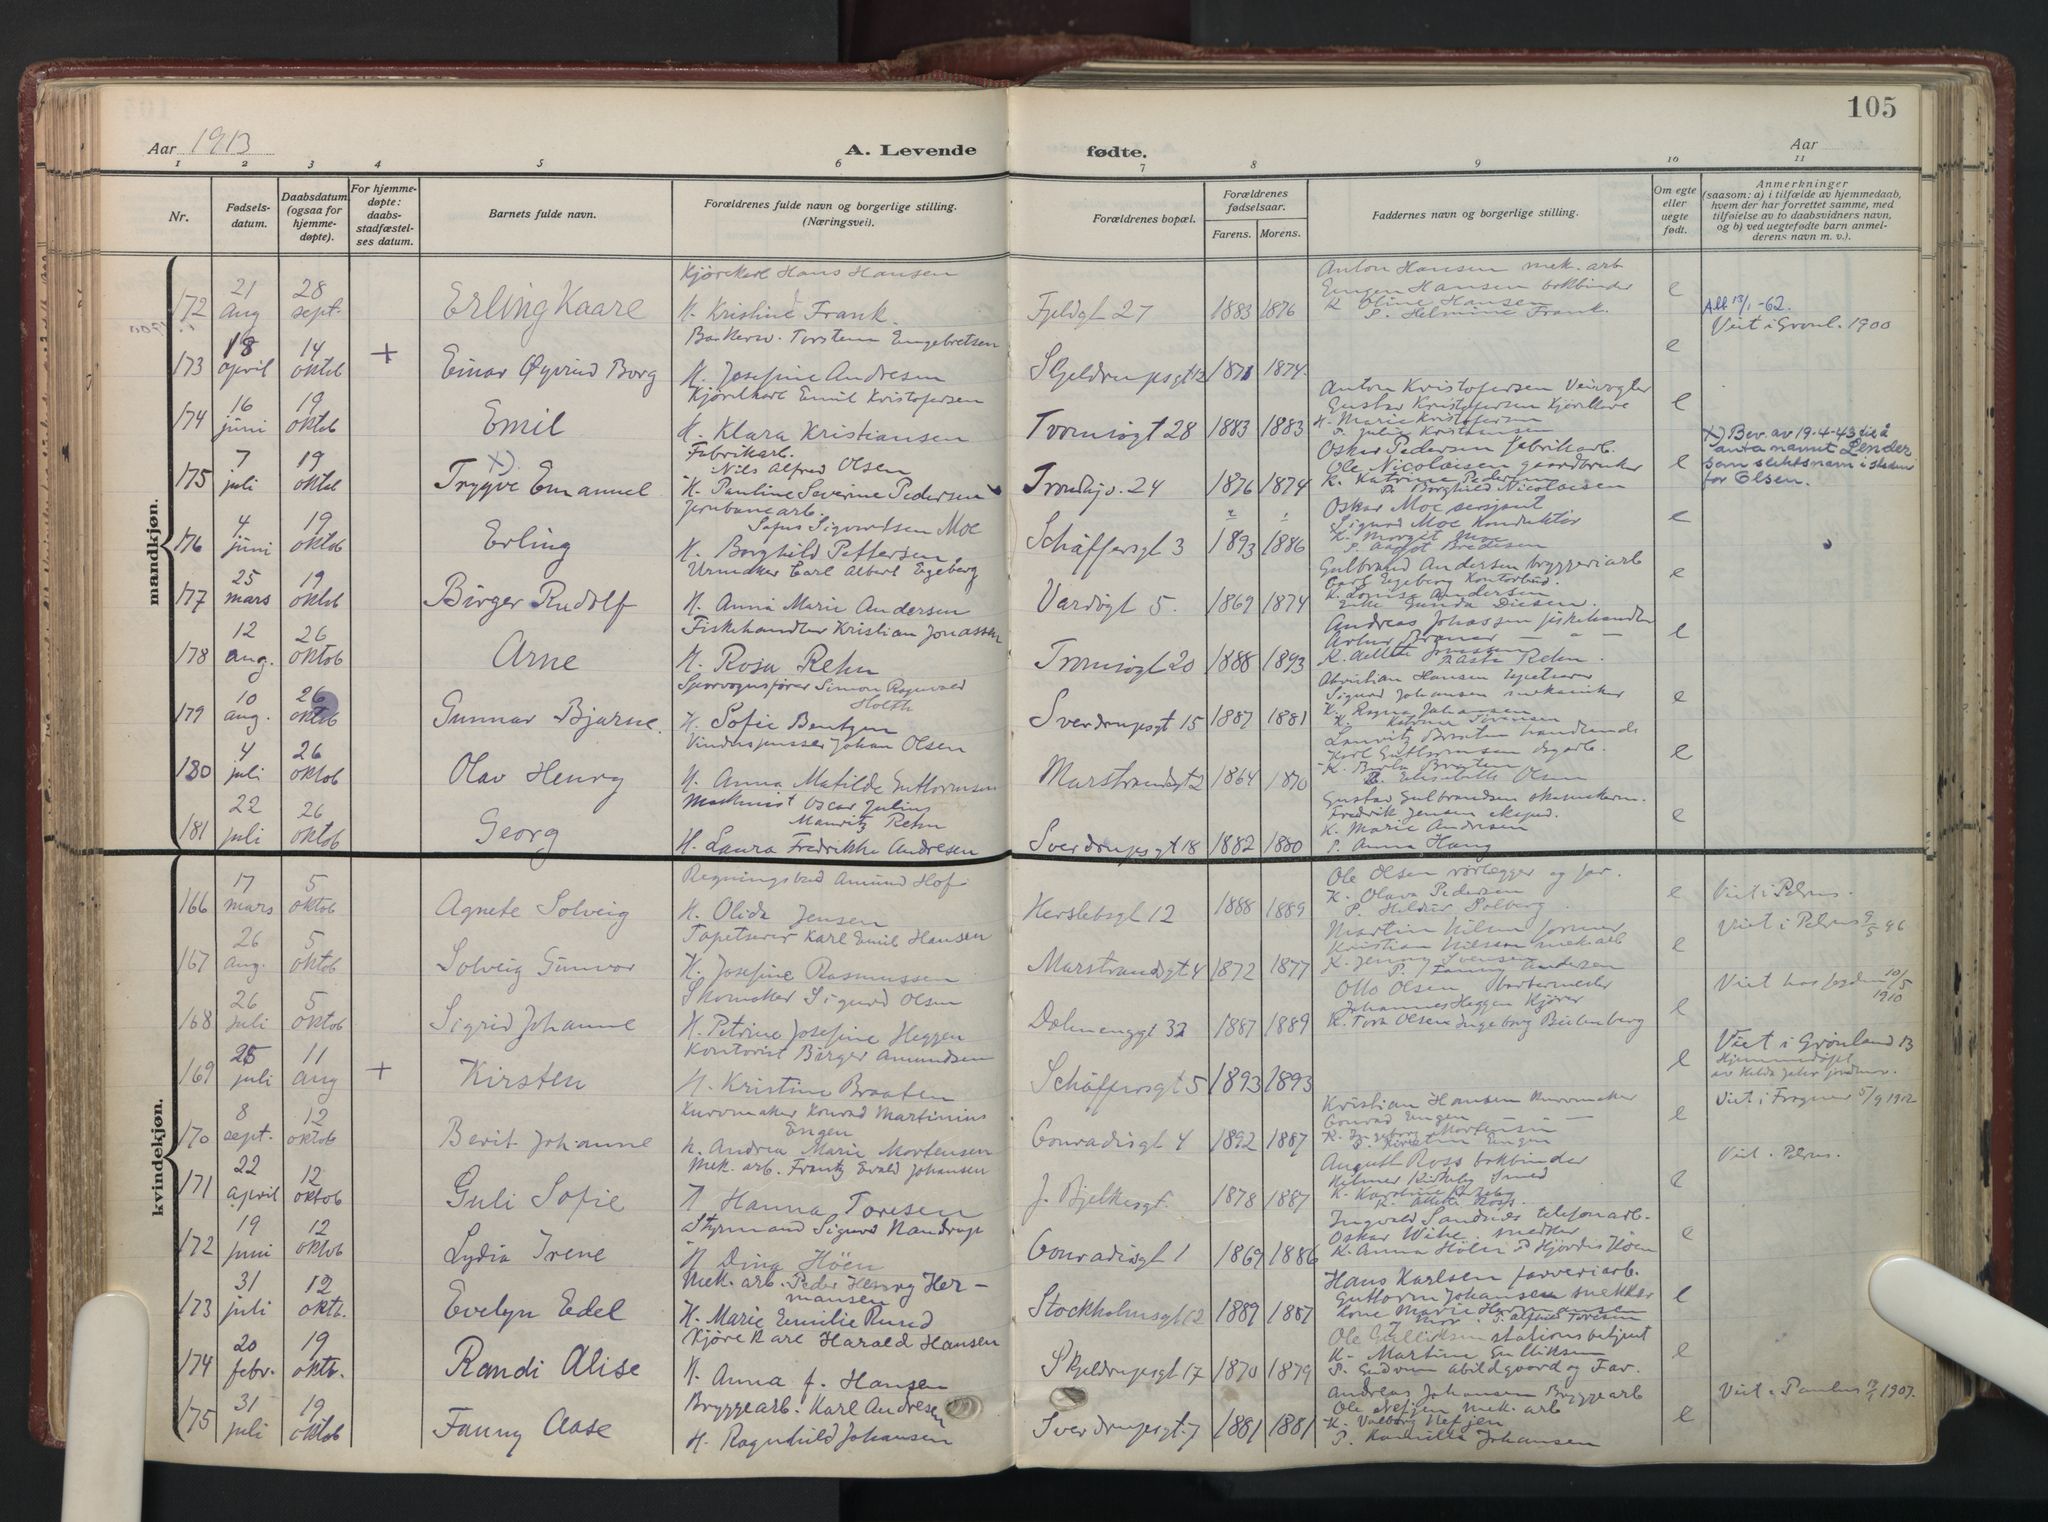 105
Aar 1913
A. Levende fødte.
Aar
1 2 3 4 5 6 7 8 9 10 11
Nr.
Fødsels-
datum.
Daabsdatum
(ogsaa for
hjemme-
døpte).
For hjemme-
døpte:
daabs-
stadfæstel-
ses datum.
Barnets fulde navn.
Forældrenes fulde navn og borgerlige stilling.
(Næringsvei).
Forældrenes bopæl.
Forældrenes
fødselsaar.
Farens. Morens.
Faddernes navn og borgerlige stilling.
Om egte
eller
uegte
født.
Anmerkninger
(saasom: a) i tilfælde av hjemmedaab,
hvem der har forrettet samme, med
tilføielse av to daabsvidners navn,
og b) ved uegtefødte barn anmel-
derens navn m. v.).
mandkjøn.
172
21 aug
28 sept.
Erling Kaare
Kjørekarl Hans Hansen
H. Kristine Frank.
Fjeldgt 27
1883 1876
Anton Hansen mek. arb
Eugen Hansen bokbinder
K. Oline Hansen
P. Helmine Frank.
e
Att 13/1-62.
173
18 april
14 oktob
+
Einar Øyvind Borg
Torstein Engebretsen
H. Josefine Andresen
Skjeldrupsgt 12
1871 1874.
e
Viet i Grønl. 1900
174
16 juni
19 oktob
Emil
Kjørekarl Emil Kristofersen
H. Klara Kristiansen
Tromsøgt 28
1883 1883
Anton Kristofersen
Gustav Kristofersen Kjørekarl
K. Marie Kristofersen
P. Julie Kristiansen
e
175
7 juli
19 oktob
x)
Trygve Emanuel
Fabrikarb.
Nils Alfred Olsen
H. Pauline Severine Pedersen
Trondhjv. 24
1876 1874
Oskar Pedersen fabrikarb.
Ole Nicolaisen gaardbruker
K. Katrine Pedersen
P. Borghild Nicolaisen
e
x) Bev. av 19-4-43 til å
anta navnet Lender
som slektsnavn i steden
for Olsen.
176
4 juni
19 oktob
Erling
Jernbanearb.
Sofus Sigvardsen Moe
H. Borghild Pettersen
Schäffersgt 3
1893 1886
Oskar Moe sersjant
Sigurd Moe Konduktør
K. Margit Moe
P. Aagot Bredesen
e
177
25 mars
19 oktob
Birger Rudolf
Urmaker Carl Albert Egeberg
H. Anna Marie Andersen
Vardøgt 5.
1869 1874
Gulbrand Andersen bryggeriarb
Carl Egeberg Kontorbud.
K. Louise Andersen
Enke Gunda Diesen.
e
178
12 aug.
26 oktob
Arne
Fiskehandler Kristian Jonassen
H. Rosa Rehn
Tromsøgt 20
1888 1893
Andreas Johassen fiskehandler
Artur
P. Asta Rehn.
e
179
10 aug.
26 oktob
Gunnar Bjarne.
Sporvognsfører Simon Ragnvald
Holth
H. Sofie Bentzen
Sverdrupsgt 15
1887 1881
Christian Hansen tapetserer
Sigurd Johansen mekaniker
K. Ragna Johansen
K. Katrine Sørensen
e
180
4 juli
26 oktob
Olav Henry
Vinduspusser Johan Olsen
H. Anna Matilde Guttormsen
Marstrandsgt 2
1864 1870
Lauritz Braaten handlende
Karl Guttormsen
K. Berta Braaten
P. Elisabeth Olsen
e
181
22 juli
26 oktob
Georg
Maskinist Oscar Julius
Mauritz Rehn
H. Laura Fredrikke Andresen
Sverdrupsgt 18
1882 1880
Gustav Gulbrandsen skomakerm.
Fredrik Jensen eksped.
K. Marie Andresen
P. Anna Haug
e
kvindekjøn.
166
17 mars
5 oktob
Agnete Solveig
Regningsbud Amund Hof
H. Olida Jensen
Herslebsgt 12
1888 1889
Ole Olsen rørlegger og far.
K. Olava Pedersen
P. Hildur Solberg.
e
Viet i Petrus.
167
26 aug.
5 oktob
Solveig Gunvor
Tapetserer Karl Emil Hansen
H. Josefine Rasmussen
Marstrandsgt 4
1872 1877
Martin Nilsen former
Kristian Nilsen mek. arb
K. Jenny Svensen
P. Fanny Andersen
e
Viet i Petrus 9/5 96
168
26 juli
5 oktob
Sigrid Johanne
Skomaker Sigurd Olsen
H. Petrine Josefine Heggen
Dælenenggt 32
1887 1889
Otto Olsen barbermester
Johannes Heggen Kjører
K. Tora Olsen Ingeborg
e
Viet hos fogden 10/5
1910
169
25 juli
11 aug
+
Kirsten
Kontorist Birger Amundsen
H. Kristine Braaten
Schäffersgt 5
1893 1893
e
Viet i Grønland 13
Hjemmedøpt
av
170
8 sept.
12 oktob
Berit Johanne
Kurvmaker Konrad Martinius
Engen
H. Andrea Marie Mortensen
Conradisgt 4
1892 1887
Kristian Hansen Kurvmaker
Conrad Engen
K. Ingeborg Mortensen
P. Kirstin Engen
e
Viet i Frogner 5/9 1912
171
22 april
12 oktob
Guli Sofie
Mek. arb. Frantz Evald Johansen
H Hanna Toresen
J. Bjelkesgt.
1878 1887
August Ross bokbinder
Hilmer Kirkeby Smed
K. Karoline Kirkeby
e
Viet i Petrus.
172
19 juni
12 oktob
Lydia Irene
Styrmand Sigurd Nandrup
H Dina Höen
Conradisgt 1
1869 1886
Ingvald Sandnæs telefonarb.
Oskar Wike, snedker
K. Anna Höen P. Hjördis Höen
e
173
31 juli
12 okt.
Evelyn Edel
Mek. arb. Peder Henry Her-
mansen
H. Marie Emilie Rund
Stockholmsgt 12
1889 1887
Hans Karlsen farveriarb.
Guttorm Johansen snekker
Kone Marie Hermansen
mor. P. Alfhild Toresen
e
174
20 febr.
19 okt.
Randi Alise
Kjørekarl Harald Hansen
H. Anna f. Hansen
Skjeldrupsgt 17
1870 1879
Ole Gulliksen stationsbetjent
K. Martine Gulliksen
P. Gudrun Abildgaard og Far.
e
175
31 juli
19 oktob
Fanny Aase
Bryggearb. Karl Andresen
H. Ragnhild Johansen
Sverdrupsgt. 7
1881 1881
Andreas Johansen Bryggearb
Ole Nefjen mek. arb
K. Valborg Nefjen
P. Kamilla Johansen
e
Viet i Paulus 1907.